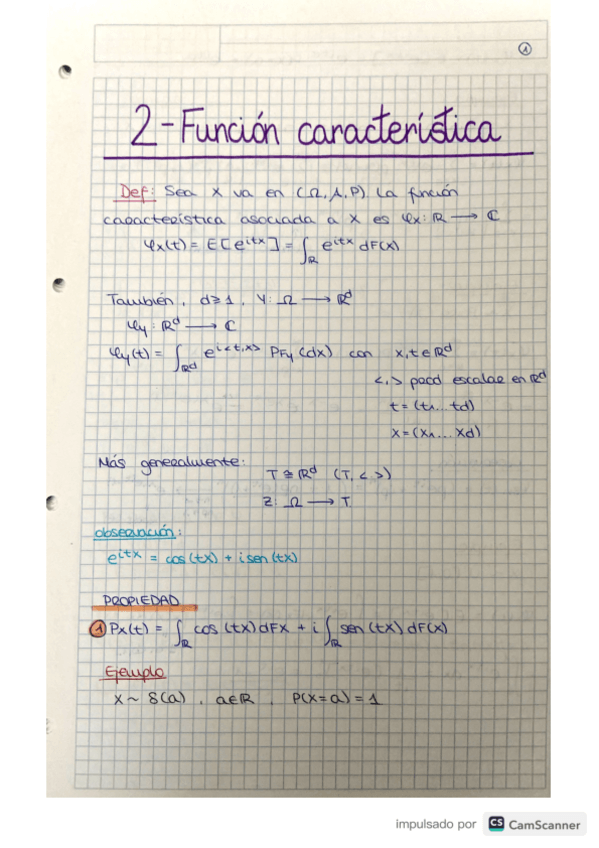 1
2-Función característica
Def: Sea X va en (Ω, A, P). La función
característica asociada a X es φx: ℝ → ℂ
φx(t) = E[e^itx] = ∫ℝ e^itx dF(x)
También, d≥1, Y: Ω → ℝ^d
φy: ℝ^d → ℂ
φy(t) = ∫ℝ^d e^i<t,x> PFy (dx) con x,t ∈ ℝ^d
<,> prod escalar en ℝ^d
t = (t1... td)
x = (x1... xd)
Más generalmente:
T ≅ ℝ^d (T, < >)
Z: Ω → T
observación:
e^itx = cos(tx) + i sen(tx)
PROPIEDAD
1 Px(t) = ∫ℝ cos(tx)dFx + i ∫ℝ sen(tx)dF(x)
Ejemplo
X ~ δ(a), a∈ℝ, P(X=a) = 1
impulsado por CS CamScanner